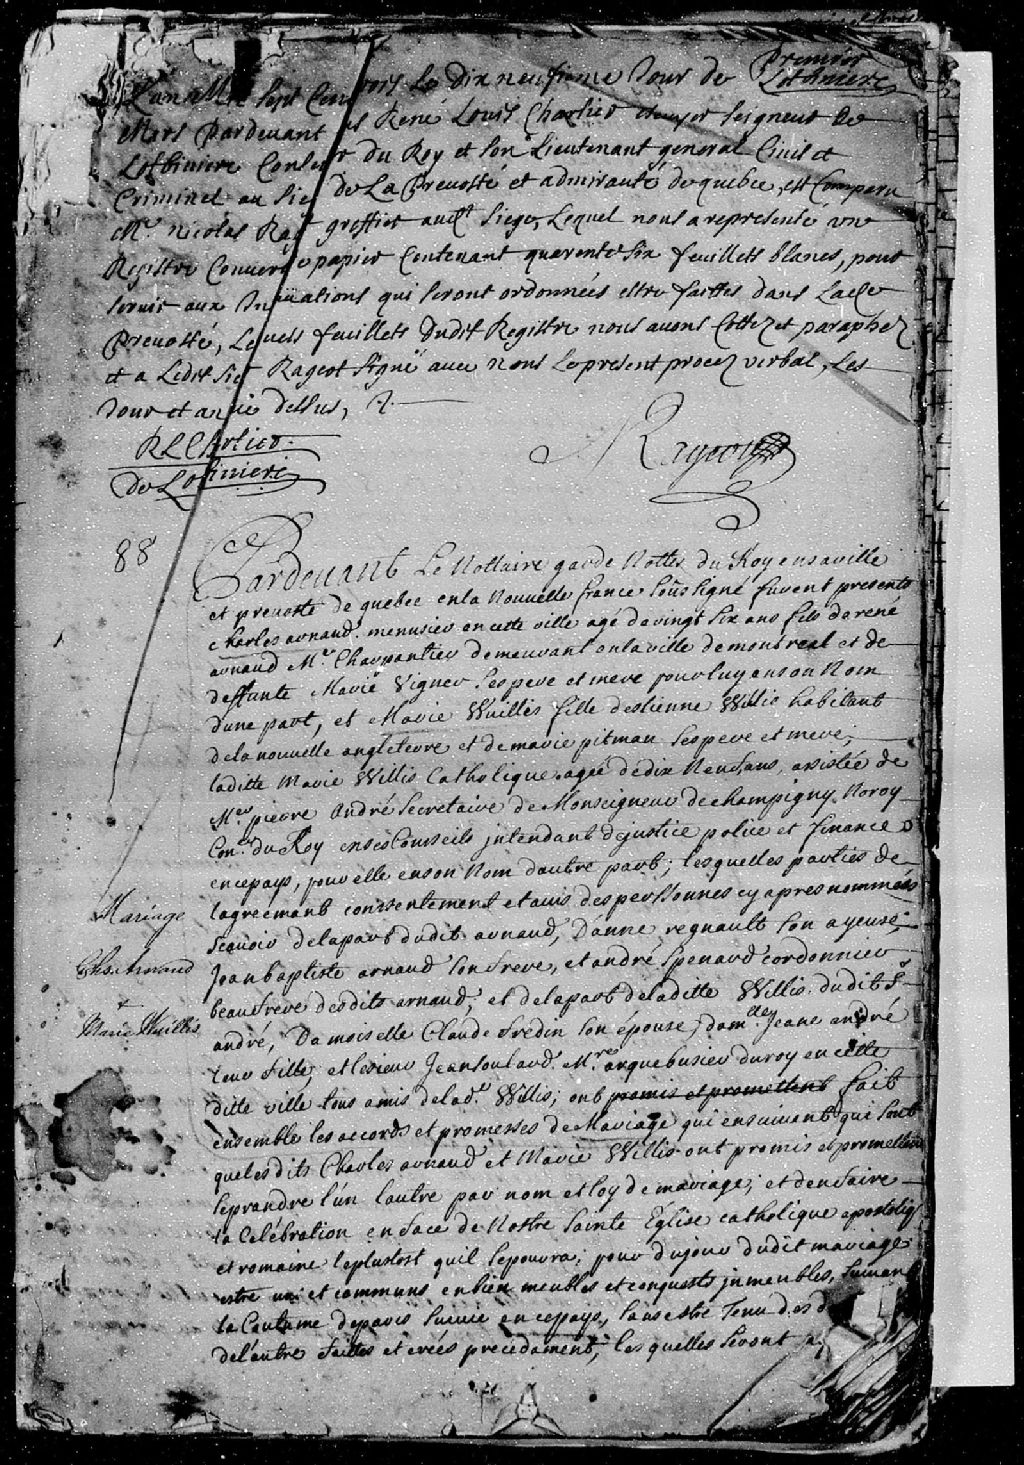 Premier
Lotbiniere
L'an Mil Sept Cent trois le Dix neufieme Jour de
Mars Pardevant nous René Louis Chartier Escuyer Seigneur de
Lotbiniere Conser du Roy et son Lieutenant general Civil et
Criminel au Siege de La Prevosté et admirauté de quebec, est Comparu
Mre. Nicolas Rageot greffier audt. Siege, Lequel nous a representé un
Registre Couvert de papier Contenant quarente six feuillets blancs, pour
servir aux Insinuations qui seront ordonnées estre faittes dans Lade
Prevosté, Lesquels feuillets Dudit Registre nous avons Cottez et paraphez
et a Ledit Sieur Rageot signé avec nous Le present procez verbal, Les
Jour et an que dessus, ./.
RLChartier
De Lotbiniere
Rageot
88
Pardevant Le Nottaire garde Nottes du Roy en sa ville
et prevosté de quebec en la Nouvelle france soussigné furent presents
Charles arnaud. menusier en cette ville agé de vingt six ans fils de rené
arnaud Mre. Charpantier demeurant en la ville de montreal et de
deffunte Marie Vigner ses pere et mere pour luy en son Nom
d'une part, et Marie Wuillis fille destienne Willis habitant
de la nouvelle angleterre et de marie pitman ses pere et mere,
laditte Marie Willis Catholique agée de dix Neuf ans, assistée de
Mre. pierre André Secretaire de Monseigneur de champigny Noroy
Coner. du Roy en ses Conseils jntendant de justice police et finance
en ce pays, pour elle en son Nom dautre part; lesquelles parties de
l'agreemant consentement et avis des personnes cy apres nommées
Scavoir de la part dudit arnaud, D'anne regnault son ayeuse,
Jean baptiste arnaud son frere, et andré Spenard cordonnier
beaufrere desdits arnaud, et de la part de laditte Willis. dudit Sr.
andré, Damoiselle Claude fredin son épouse, damlle. Jeane andré
leur fille, et lesieur Jean soulard. Mre. arquebusier du roy en cette
ditte ville tous amis de lade. Willis; ont promis et promettent fait
ensemble les accords et promesses de Mariage qui ensuivent qui sont
que lesdits Charles arnaud et Marie Willis ont promis et promettent
se prandre l'un l'autre par nom et loy de mariage, et den faire
la Celébration en face de Nostre Sainte Eglise catholique apostoliq
et romaine le plustost quil se pourra; pour du jour dudit mariage
estre uni et communs en bien meubles et conquests jnmeubles, suivant
la Coutume de paris suivie en ce pays, sans estre Tenu des
de l'autre faittes et crées precedament, lesquelles seront
Mariage
Chs. Arnaud
+
Marie Wuillis